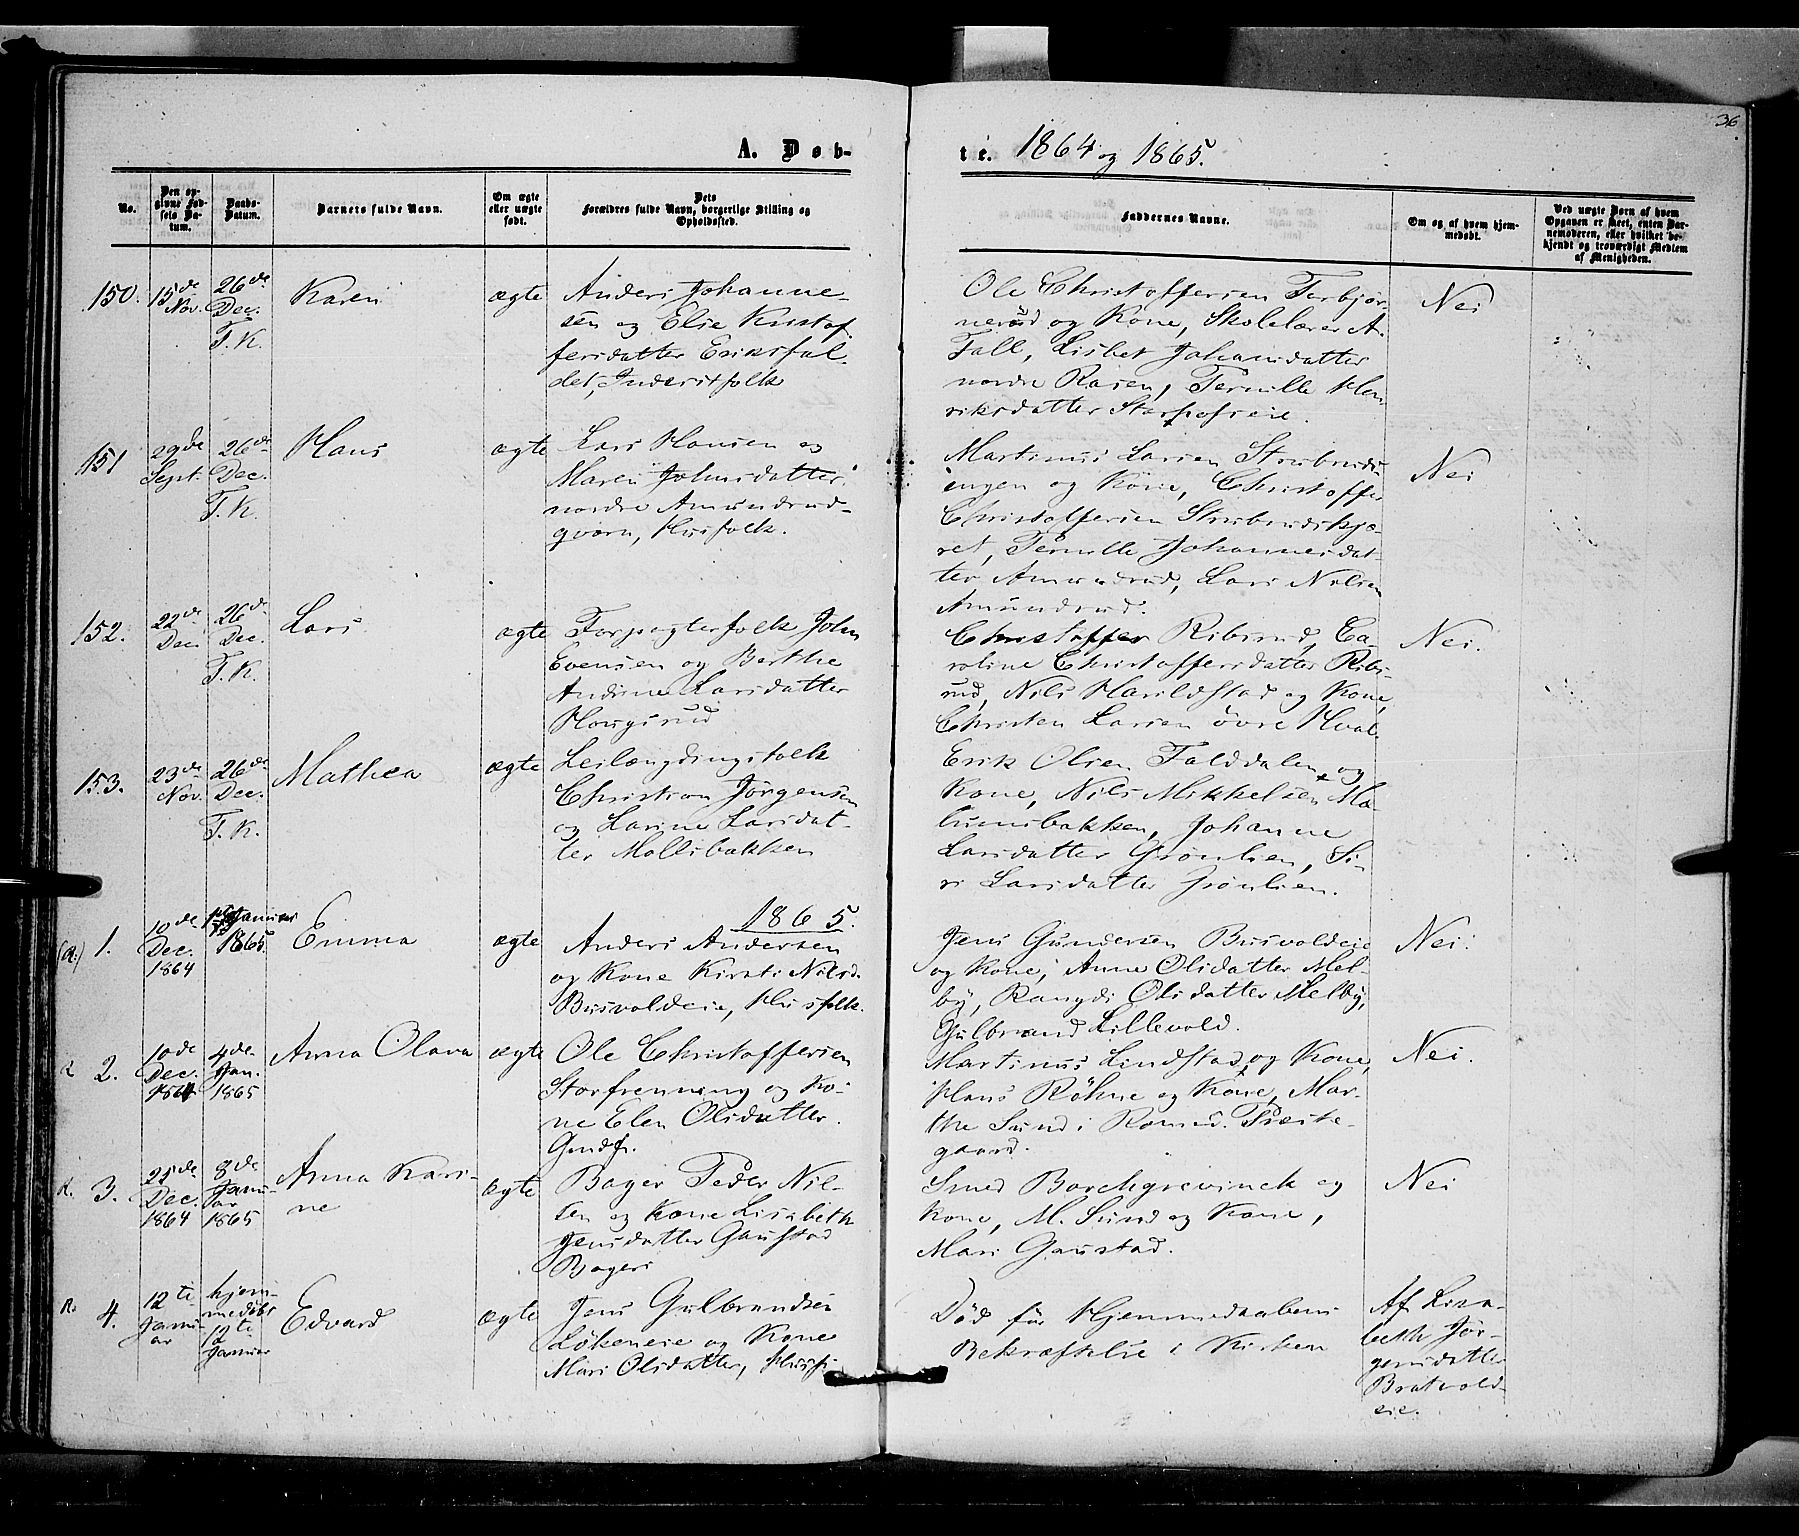 36.
A. Døb-
te. 1864 og 1865.
No.
Den op-
givne Fød-
sels Da-
tum.
Daabs-
Datum.
Barnets fulde Navn.
Om ægte
eller uægte
født.
Dets
Forældres fulde Navn, borgerlige Stilling og
Opholdssted.
Faddernes Navne.
Om og af hvem hjem-
medøbt.
Ved uægte Børn af hvem
Opgaven er skeet, enten Bar-
nemoderen, eller hvilket be-
kjendt og troværdigt Medlem
af Menigheden.
150.
15de
Nov.
26de
Dec.
F. K.
Karen
ægte
Anders Johanne-
sen og Elie Kristof
fersdatter Eriksfal-
det, Inderstfolk
Ole Christoffersen Torbjør-
nerud og Kone, Skolelærer A.
Fall, Lisbet Johansdatter
nordre Rasen, Pernille Hen
riksdatter
Nei
151
29de
Sept.
26de
Dec.
F. K.
Hans
ægte
Lars Hansen og
Maren Johnsdatter,
nordre Amundrud-
qværn, Husfolk.
Martinus Larsen Strubruds
engen og Kone, Christoffer
Christoffersen Strubrudskjæ
ret, Pernille Johannesdat-
ter Amundrud, Lars Nilsen
Amundrud.
Nei
152.
22de
Dec
26de
Dec.
F. K.
Lars
ægte
Forpagterfolk John
Evensen og Berthe
Andrine Larsdatter
Hougsrud
Christoffer Ribsrud, Ca-
roline Christoffersdatter Ribs-
rud, Nils Harildstad og Kone,
Christen Larsen øvre Hval.
Nei.
153.
23de
Nov.
26de
Dec.
F. K.
Mathea
ægte
Leilændingsfolk
Christian Jörgensen
og Larine Larsdat-
ter Mollisbakken
Erik Olsen Falddalen og
Kone, Nils Mikkelsen Ma-
lumsbakken, Johanne
Larsdatter Grønlien, Si-
ri Larsdatter Grønlien.
1865.
1.
10de
Dec.
1864
Januar
1865
Emma
ægte
Anders Andersen
og Kone Kirsti Nilsd.
Busvoldeie, Husfolk.
Jens Gundersen Busvoldeie
og Kone, Anne Olsdatter Mel-
by, Rangdi Olsdatter Melby,
Gulbrand Lillevold.
Nei.
2.
10de
Dec.
1864
4de
Jan.
1865
Anna Olava
ægte
Ole Christoffersen
Storfrenning og Ko-
ne Elen Olsdatter.
Gaardf.
Martinus Lindstad og Kone,
Hans Röhne og Kone, Mar-
the Sund i Romed. Præste-
gaard.
Nei.
3.
25de
Dec.
1864
8de
Janu-
ar
1865
Anna Kari-
ne
ægte
Bager Peder Nil-
sen og Kone Lisabeth
Jensdatter Gaustad
Bageri
Smed Borchgrevinck og
Kone, M. Sund og Kone,
Mari Gaustad.
Nei
4.
12te
Janu-
ar
hjem-
medøbt
12te
Januar
Edvard
ægte
Jens Gulbrandsen
Løkeneie og Kone
Mari Olsdatter, Husf.
Död för Hjemmedaabens
Bekræftelse i Kirken
Af Lisa-
beth Jør-
gensdatter
Bratvold-
eie.